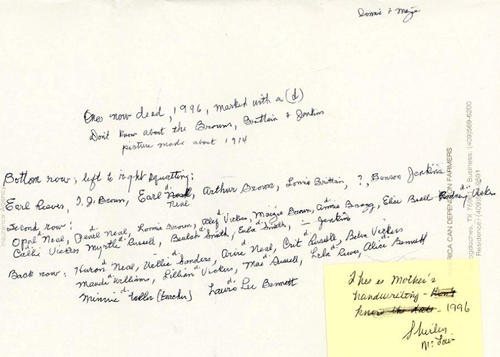 Lonnie & Maize
Ones now dead, 1996, marked with a (d)
Don't know about the Browns, Brittain & Jenkins
picture made about 1914
Bottom row, left to right squatting:
Earl Reeves, T. J. Brown, Earl Neal, Arthur Brown, Lonnie Brittain, ?, Benson Jenkins
Neal
Second row:
Opal Neal, Pearl Neal, Lonnie Brown, Alef Vickers, Maize Brown, Annie Bragg, Elie Buell Vickers
Callie Vickers Myrtle Russell, Beulah Smith, Eula Smith, Jenkins
Back row: Huron Neal, Vallie Sanders, Arvie Neal, Brit Russell, Ben Vickers
Maude Williams, Lillian Vickers, Mae Russell, Lela Reeves, Alice Bennett
Minnie Toller (teacher) Laura Lee Bennett
RICA CAN DEPEND ON FARMERS
Business: (409)569-6200
Residence: (409)
This is Mother's
handwriting
know the date - 1996
Shirley
McLain